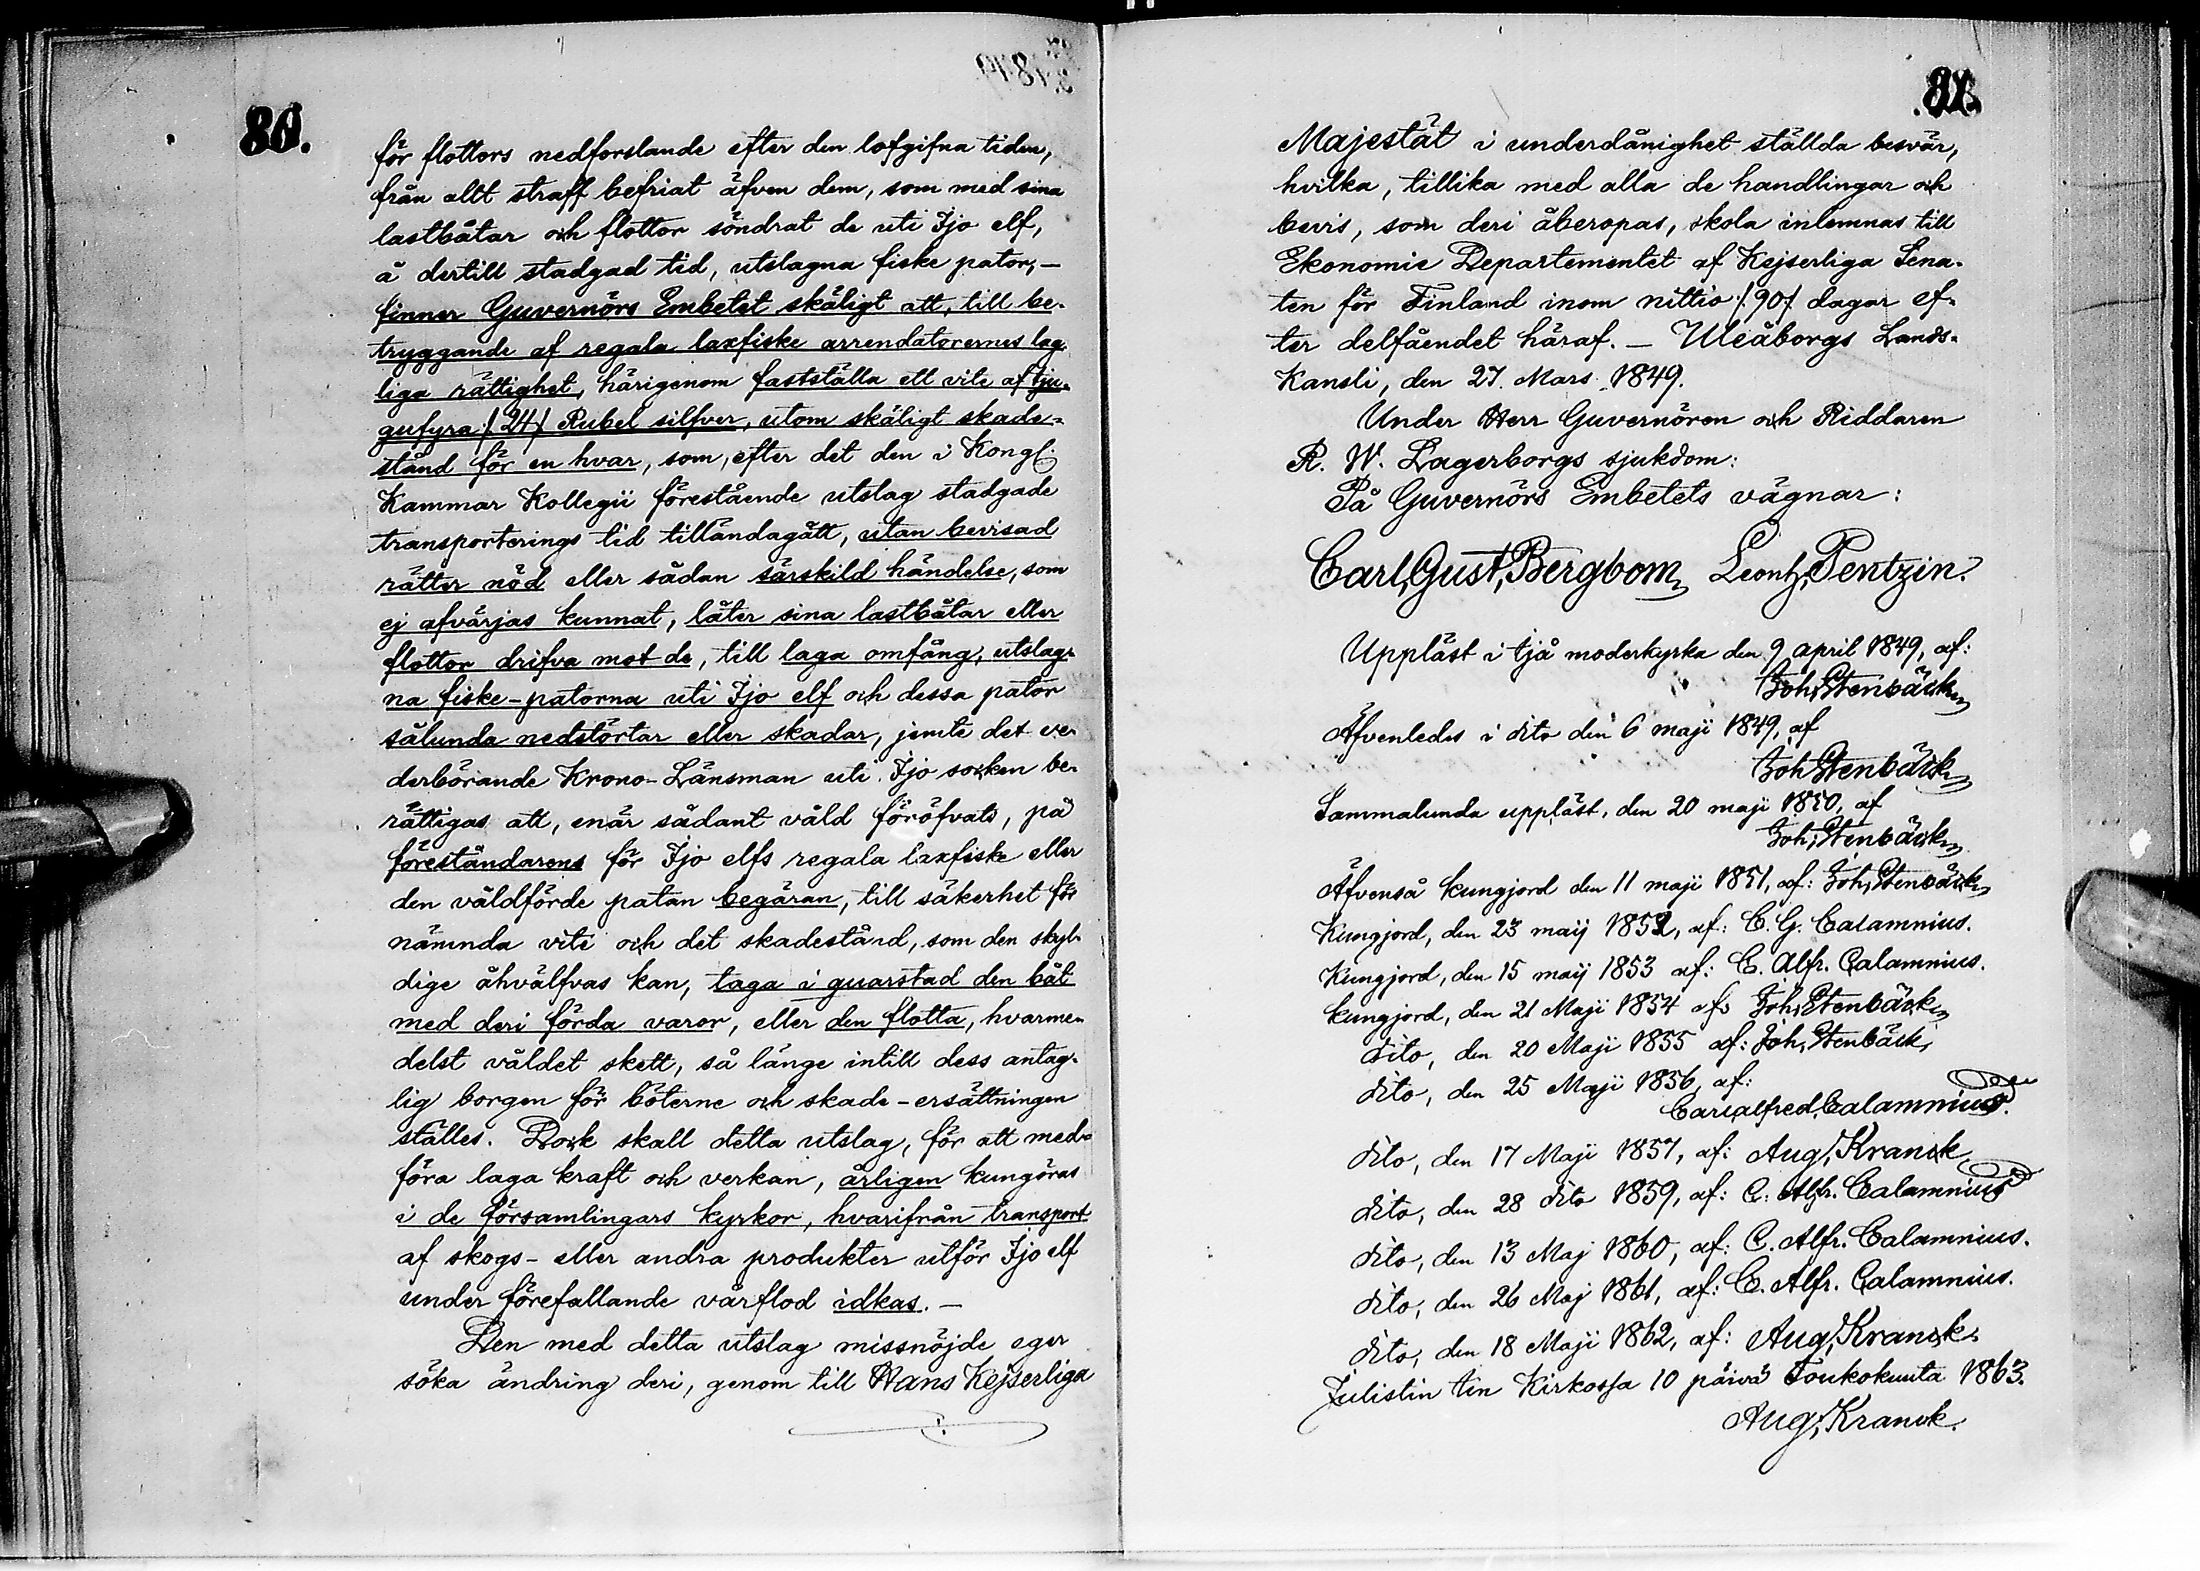 80.
för flottors nedforslande efter den lofgifna tiden,
från allt straff befriat äfven dem, som med sina
lastbåtar och flottor söndrat de uti Ijo elf,
å dertill stadgad tid, utslagna fiske pator, –
finner Guvernörs Embetet skäligt att, till be-
tryggande af regala laxfiske arrendatorernes lag-
liga rättighet, härigenom fastställa ett vite af tju-
gufyra /24/ Rubel silfver, utom skäligt skade-
stånd för en hvar, som, efter det den i Kongl.
Kammar Kollegii förestående utslag stadgade
transporterings tid tilländagått, utan bevisad
rätter nöd eller sådan särskild händelse, som
ej afvärjas kunnat, låter sina lastbåtar eller
flottor drifva mot de, till laga omfång, utslag-
na fiske-patorna uti Ijo elf och dessa pator
sålunda nedstörtar eller skadar, jemte det ve-
derbörande Krono-Länsman uti Ijo socken be-
rättigas att, enär sådant våld föröfvats, på
föreståndarens för Ijo elfs regala laxfiske eller
den våldförde patan begäran, till säkerhet för
nämnda vite och det skadestånd, som den skyl-
dige åhvälfvas kan, taga i quarstad den båt
med deri förda varor, eller den flotta, hvarme-
delst våldet skett, så länge intill dess antag-
lig borgen för böterne och skade-ersättningen
ställes. Dock skall detta utslag, för att med-
föra laga kraft och verkan, årligen kungöras
i de församlingars kyrkor, hvarifrån transport
af skogs- eller andra produkter utför Ijo elf
under förefallande vårflod idkas. –
Den med detta utslag missnöjde eger
söka ändring deri, genom till Hans Kejserliga
81.
Majestät i underdånighet ställda besvär,
hvilka, tillika med alla de handlingar och
bevis, som deri åberopas, skola inlemnas till
Ekonomie Departementet af Kejserliga Sena-
ten för Finland inom nittio /90/ dagar ef-
ter delfåendet häraf. – Uleåborgs Lands-
Kansli, den 27. Mars 1849.
Under Herr Guvernören och Riddaren
R. W. Lagerborgs sjukdom:
På Guvernörs Embetets vägnar:
Carl Gust. Bergbom Leont. Pentzin.
Uppläst i Ijå moderkyrka den 9 april 1849, af:
Joh. Stenbäck
Äfvenledes i dito den 6 maji 1849, af
Joh. Stenbäck
Sammalunda uppläst, den 20 maji 1850, af
Joh. Stenbäck
Äfvenså kungjord den 11 maji 1851, af: Joh. Stenbäck
Kungjord, den 23 maij 1852, af: C. G. Calamnius.
Kungjord, den 15 maij 1853 af: C. Alfr. Calamnius.
kungjord, den 21 Maji 1854 af: Joh. Stenbäck
dito, den 20 Maji 1855 af: Joh. Stenbäck
dito, den 25 Maji 1856, af:
Carl Alfred Calamnius.
dito, den 17 Maji 1857, af: Aug. Kranck
dito, den 28 dito 1859, af: C. Alfr. Calamnius
dito, den 13 Maj 1860, af: C. Alfr. Calamnius.
dito, den 26 Maj 1861, af: C. Alfr. Calamnius.
dito, den 18 Maji 1862, af: Aug. Kranck
Julistin Iin Kirkossa 10 päivä Toukokuuta 1863.
Aug. Kranck.